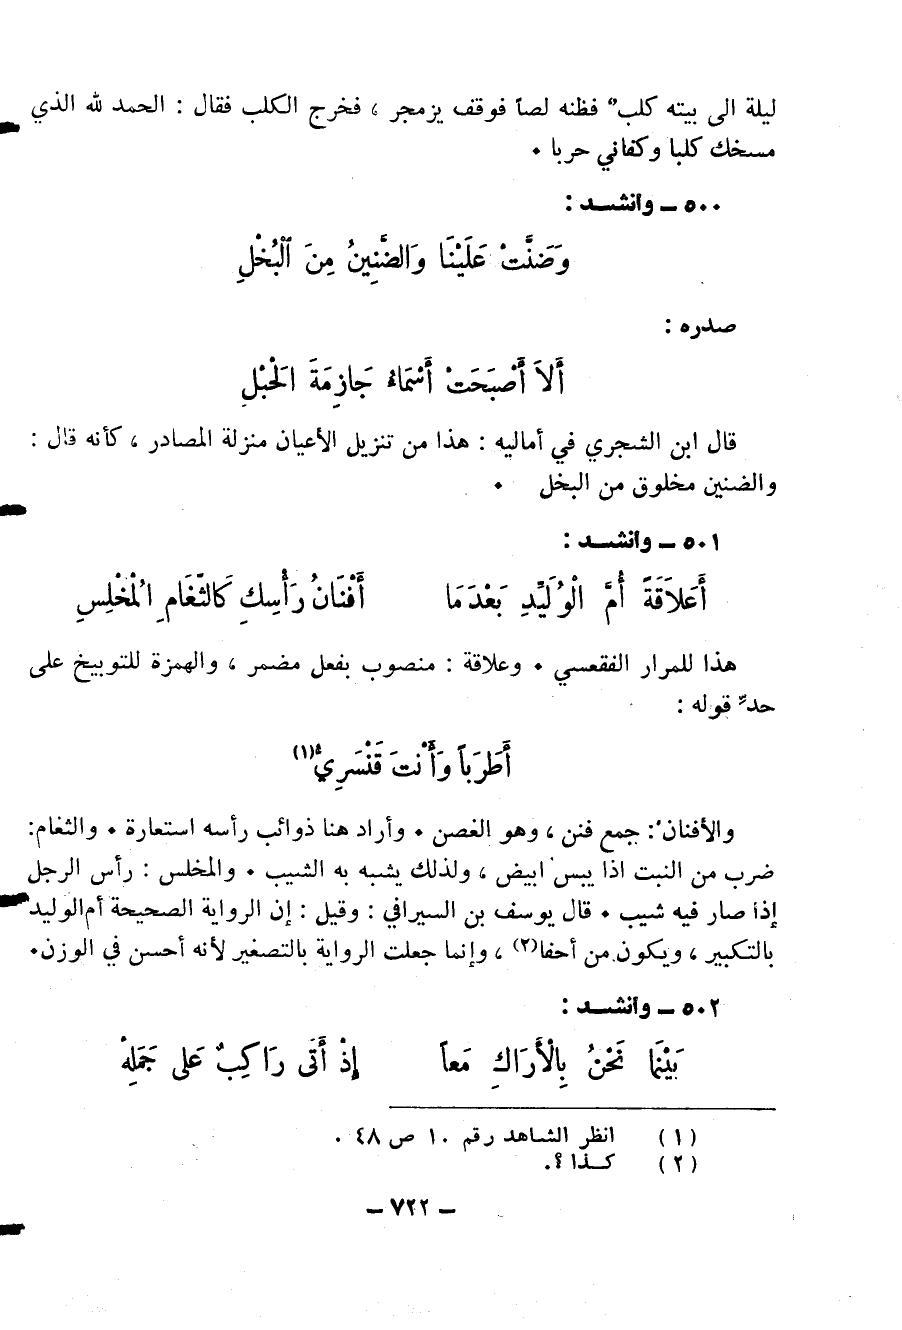 ليلة الى بيته كلبٌ فظنه لصاً فوقف يزمجر ، فخرج الكلب فقال : الحمد لله الذي
مسخك كلبا وكفاني حربا ٠
٥٠٠ ــ وأنشــد :
وَضَنَّتْ عَلَيْنَا وَالضَّنِينُ مِنَ ٱلْبُخْلِ
صدره :
أَلاَ أَصْبَحَتْ أَسْمَاءُ جَازِمَةَ الْحَبْلِ
قال ابن الشجري في أماليه : هذا من تنزيل الأعيان منزلة المصادر ، كأنه قال :
والضنين مخلوق من البخل ٠
٥٠١ ــ وأنشــد :
أَعَلاَقَةً أُمَّ الْوُلَيِّدِ بَعْدَمَا أَفْنَانُ رَأْسِكِ كَالثَّغَامِ الْمُخْلِسِ
هذا للمرار الفقعسي ٠ وعلاقة : منصوب بفعل مضمر ، والهمزة للتوبيخ على
حدِّ قوله :
أَطَرَباً وَأَنْتَ قَنْسَرِيُّ(١)
والأفنان : جمع فنن ، وهو الغصن ٠ وأراد هنا ذوائب رأسه استعارة ٠ والثغام:
ضرب من النبت اذا يبس ابيض ، ولذلك يشبه به الشيب ٠ والمخلس : رأس الرجل
إذا صار فيه شيب ٠ قال يوسف بن السيرافي : وقيل : إن الرواية الصحيحة أم الوليد
بالتكبير ، ويكون من أحفا(٢) ، وإنما جعلت الرواية بالتصغير لأنه أحسن في الوزن٠
٥٠٢ ــ وأنشــد :
بَيْنَمَا نَحْنُ بِالْأَرَاكِ مَعاً إِذْ أَتَى رَاكِبٌ عَلَى جَمَلِهْ
(١) انظر الشاهد رقم ١٠ ص ٤٨ .
(٢) كــذا ؟.
ــ ٧٢٢ ــ